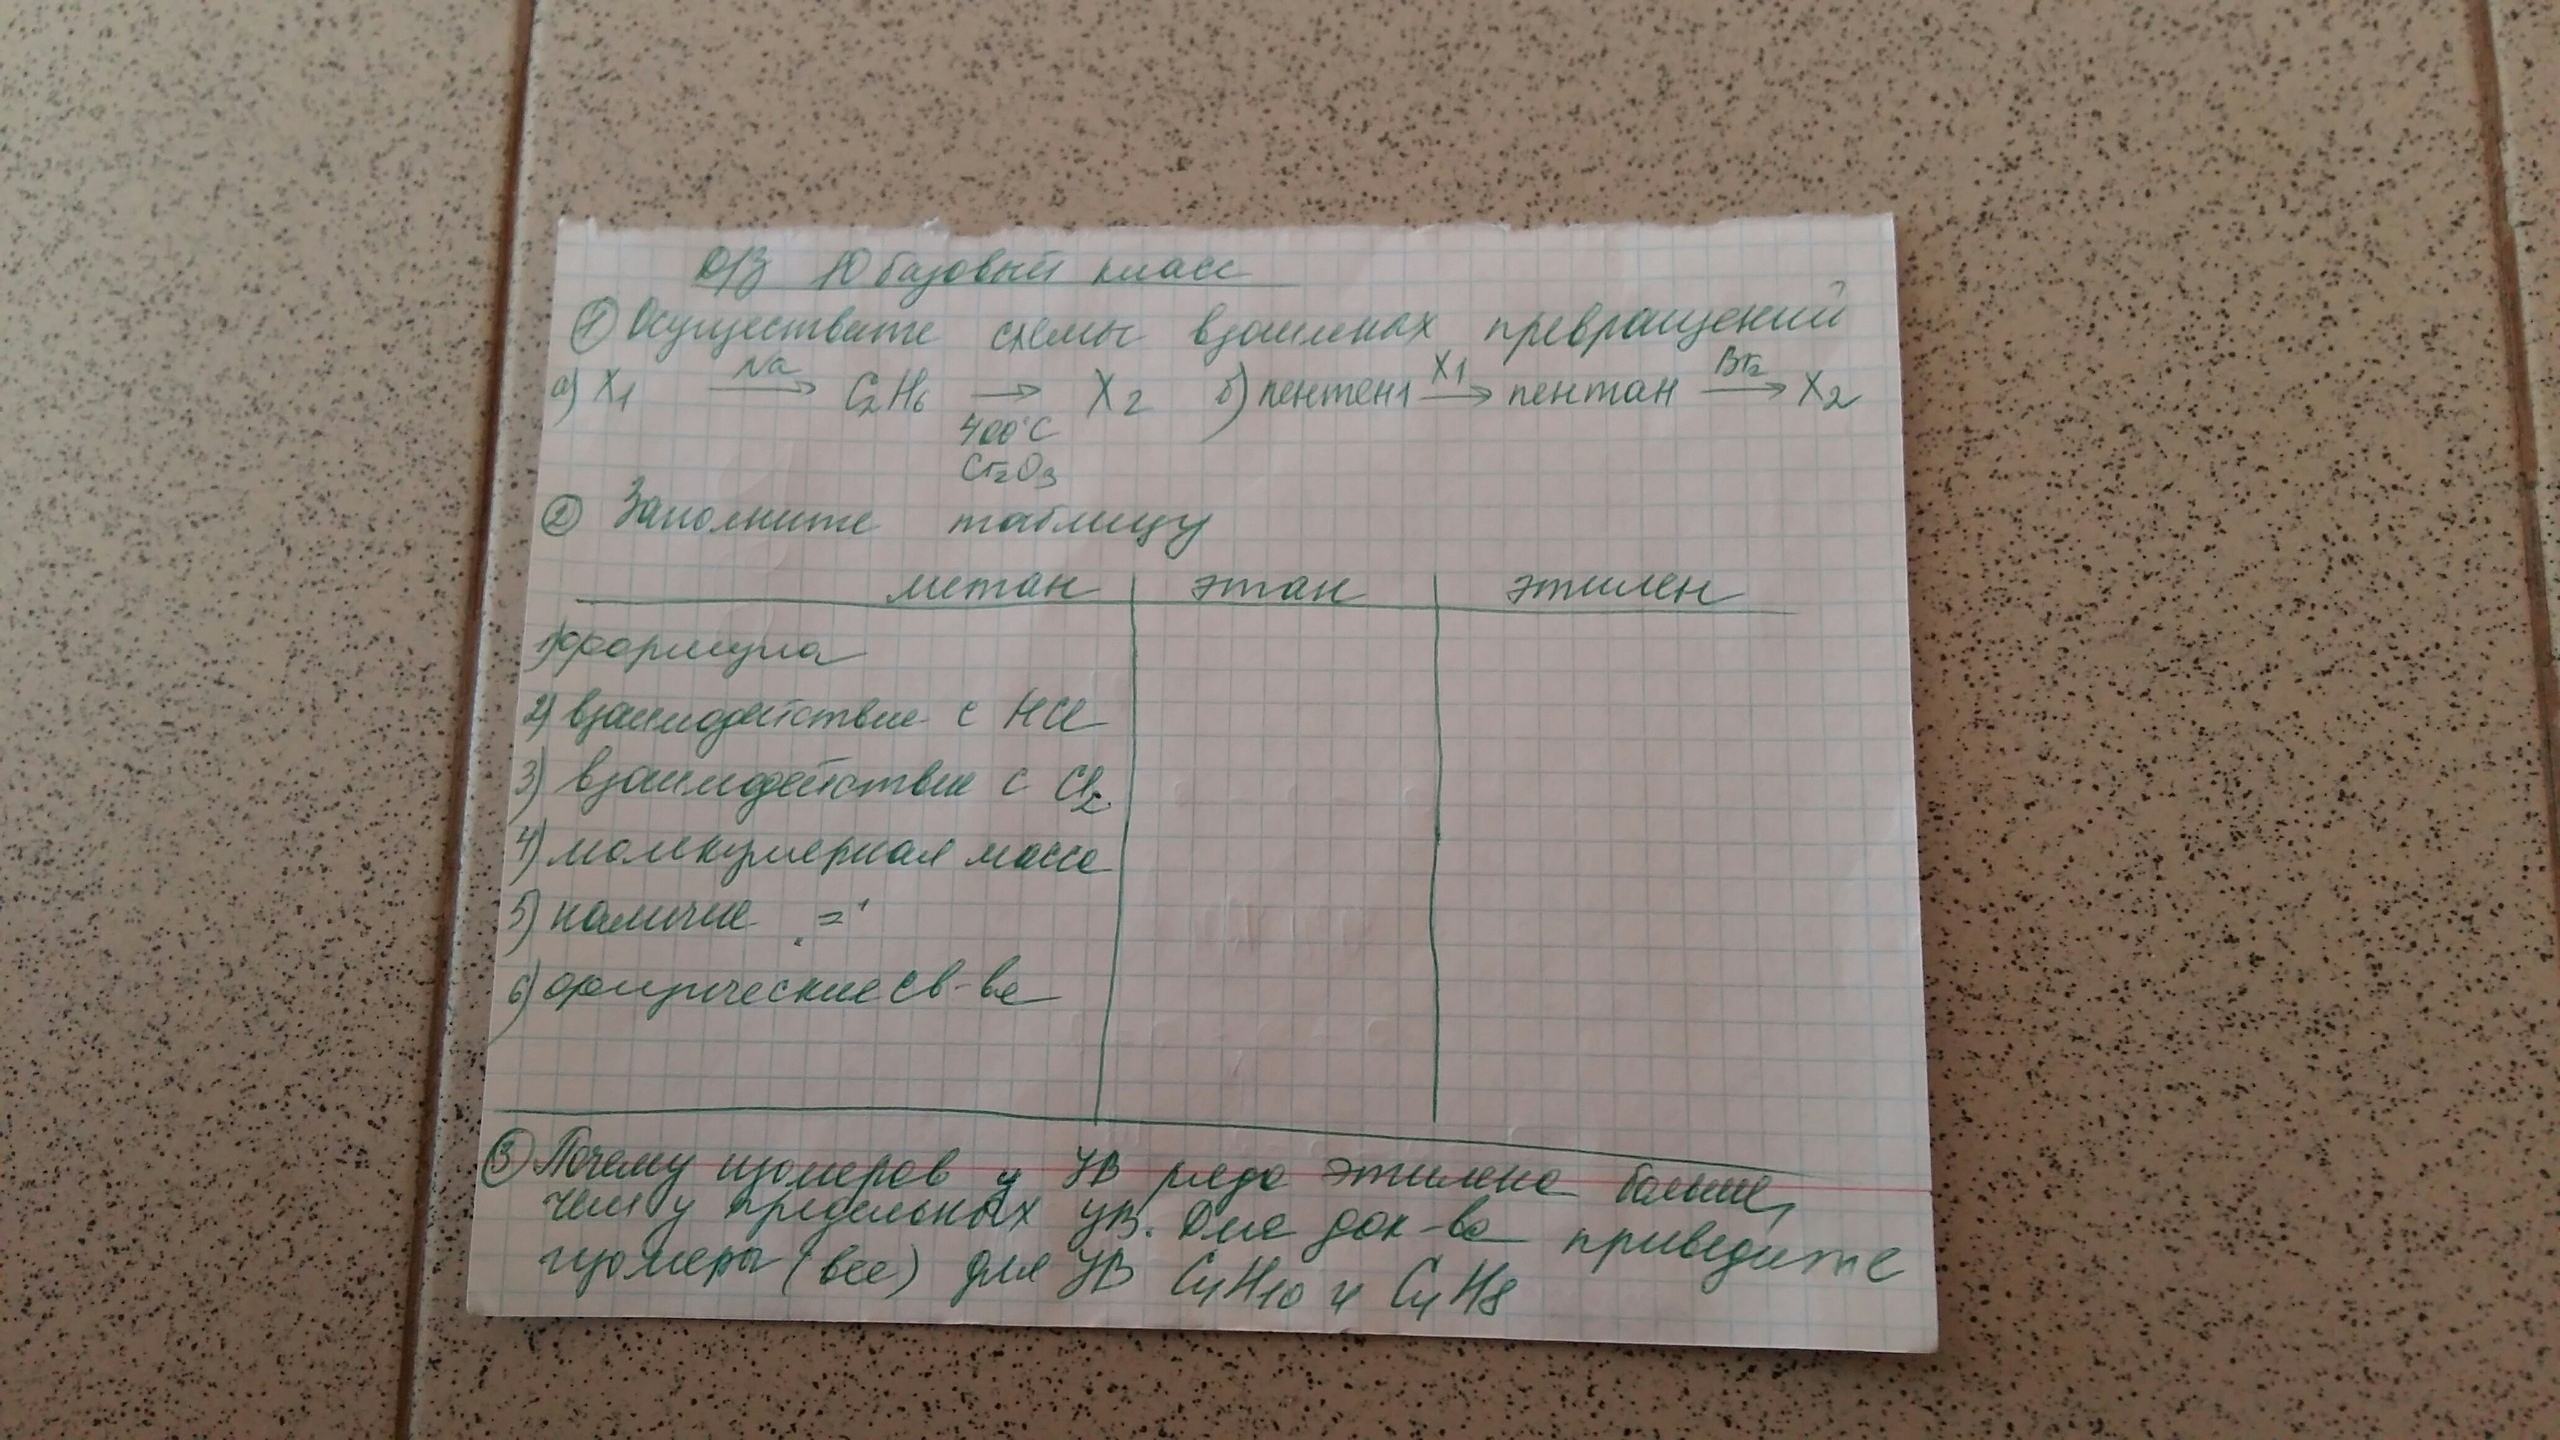 Д/З 10 базовый класс
① Осуществите схемы взаимных превращений
а) X1 Na→ C2H6 → 400°C Cr2O3 X2 б) пентен1 X1→ пентан Br2→ X2
② Заполните таблицу
метан | этан | этилен
1) формула
2) взаимодействие с HCl
3) взаимодействие с Cl2
4) молекулярная масса
5) наличие "="
6) физические св-ва
③ Почему изомеров у УВ ряда этилена больше,
чем у предельных УВ. Для док-ва приведите
изомеры (все) для УВ C4H10 и C4H8